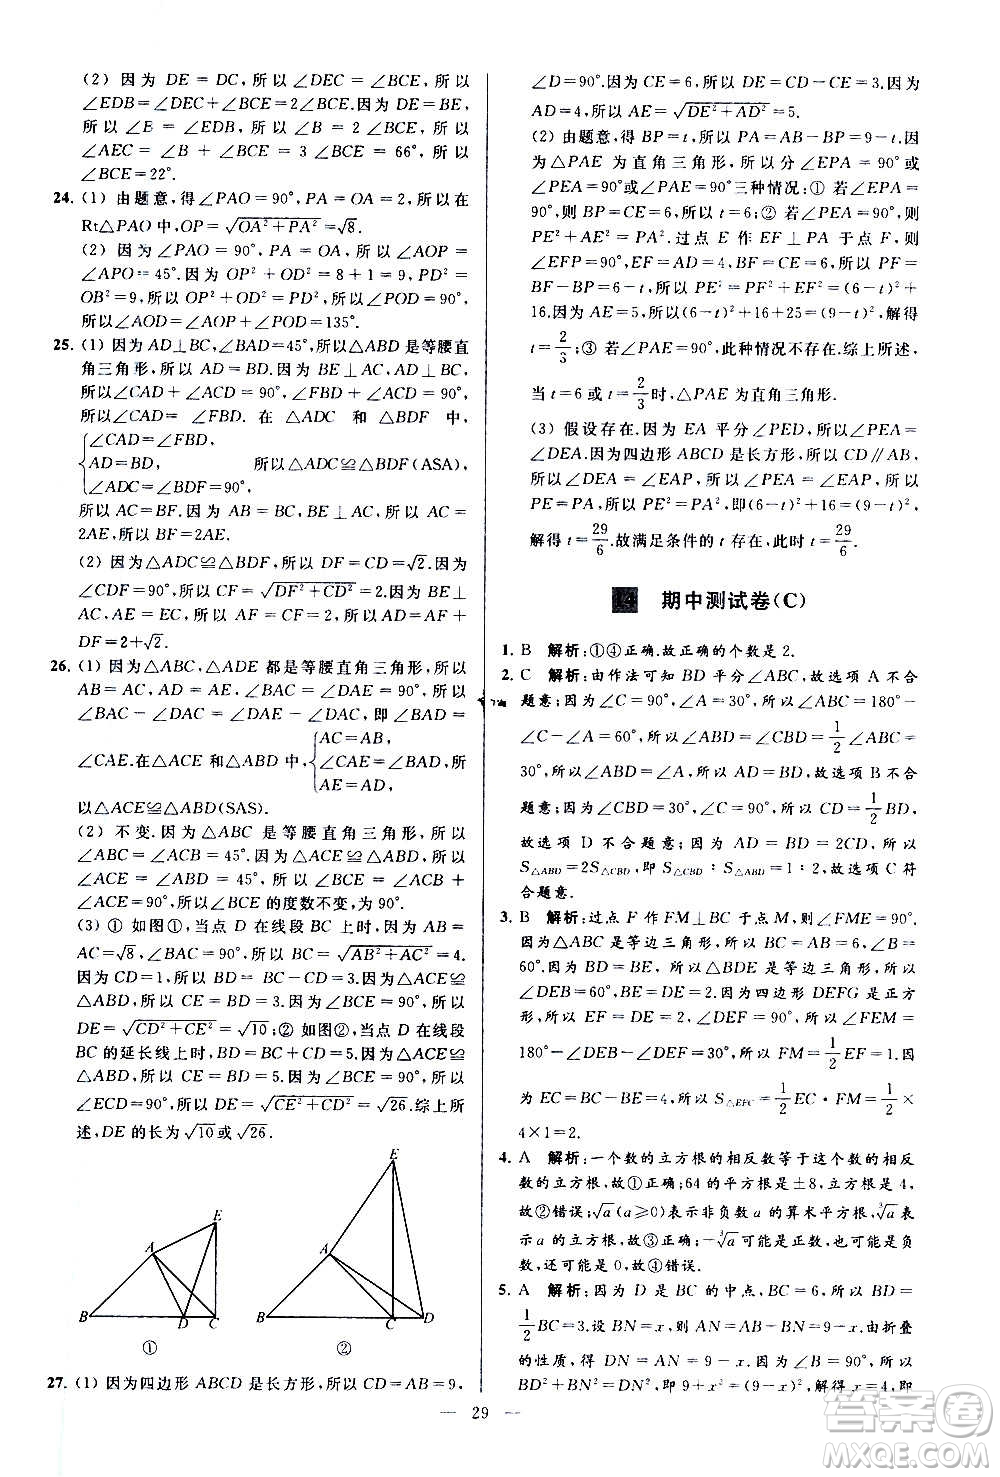 (2) 因为 DE＝DC,所以∠DEC＝∠BCE,所以
∠EDB＝∠DEC＋∠BCE＝2∠BCE.因为 DE＝BE,
所以∠B＝∠EDB,所以∠B＝2∠BCE,所以
∠AEC＝∠B＋∠BCE＝3∠BCE＝66°,所以
∠BCE＝22°.
24. (1) 由题意,得∠PAO＝90°,PA＝OA＝2,所以在
Rt△PAO 中,OP＝√(OA²＋PA²)＝√8.
(2) 因为∠PAO＝90°,PA＝OA,所以∠AOP＝
∠APO＝45°.因为 OP²＋OD²＝8＋1＝9,PD²＝
OB²＝9,所以 OP²＋OD²＝PD²,所以∠POD＝90°,
所以∠AOD＝∠AOP＋∠POD＝135°.
25. (1) 因为 AD⊥BC,∠BAD＝45°,所以△ABD 是等腰直
角三角形,所以 AD＝BD.因为 BE⊥AC,AD⊥BC,
所以∠CAD＋∠ACD＝90°,∠FBD＋∠ACD＝90°,
所以∠CAD＝∠FBD. 在 △ADC 和 △BDF 中,
∠CAD＝∠FBD,
AD＝BD, 所以△ADC≌△BDF(ASA),
∠ADC＝∠BDF＝90°,
所以 AC＝BF.因为 AB＝BC,BE⊥AC,所以 AC＝
2AE,所以 BF＝2AE.
(2) 因为△ADC≌△BDF,所以 DF＝CD＝√2.因为
∠CDF＝90°,所以 CF＝√(DF²＋CD²)＝2.因为 BE⊥
AC,AE＝EC,所以 AF＝CF＝2,所以 AD＝AF＋
DF＝2＋√2.
26. (1) 因为△ABC,△ADE 都是等腰直角三角形,所以
AB＝AC,AD＝AE,∠BAC＝∠DAE＝90°,所以
∠BAC－∠DAC＝∠DAE－∠DAC,即∠BAD＝
∠CAE.在△ACE 和△ABD 中, AC＝AB, ∠CAE＝∠BAD, AE＝AD, 所
以△ACE≌△ABD(SAS).
(2) 不变.因为△ABC 是等腰直角三角形,所以
∠ABC＝∠ACB＝45°.因为△ACE≌△ABD,所以
∠ACE＝∠ABD＝45°,所以∠BCE＝∠ACB＋
∠ACE＝90°,所以∠BCE的度数不变,为90°.
(3) ① 如图①,当点 D 在线段 BC 上时,因为 AB＝
AC＝√8,∠BAC＝90°,所以 BC＝√(AB²＋AC²)＝4.
因为 CD＝1,所以 BD＝BC－CD＝3.因为△ACE≌
△ABD,所以 CE＝BD＝3.因为∠BCE＝90°,所以
DE＝√(CD²＋CE²)＝√10;② 如图②,当点 D 在线段
BC 的延长线上时,BD＝BC＋CD＝5.因为△ACE≌
△ABD,所以 CE＝BD＝5.因为∠BCE＝90°,所以
∠ECD＝90°,所以 DE＝√(CE²＋CD²)＝√26.综上所
述,DE 的长为√10或√26.
E
A
B
D
C
①
E
A
B
C
D
②
27. (1) 因为四边形 ABCD 是长方形,所以 CD＝AB＝9,
∠D＝90°.因为 CE＝6,所以 DE＝CD－CE＝3.因为
AD＝4,所以 AE＝√(DE²＋AD²)＝5.
(2) 由题意,得 BP＝t,所以 PA＝AB－BP＝9－t.因
为△PAE 为直角三角形,所以分∠EPA＝90°或
∠PEA＝90°或∠PAE＝90°三种情况:① 若∠EPA＝
90°,则 BP＝CE＝6,所以 t＝6;② 若∠PEA＝90°,则
PE²＋AE²＝PA².过点 E 作 EF⊥PA 于点 F,所以
∠EFP＝90°,所以 EF＝AD＝4,BF＝CE＝6,所以 PF＝
BF－BP＝6－t,所以 PE²＝PF²＋EF²＝(6－t)²＋
16.因为 AE＝5,所以(6－t)²＋16＋25＝(9－t)²,解得
t＝2/3;③ 若∠PAE＝90°,此种情况不存在.综上所述,
当 t＝6或 t＝2/3时,△PAE 为直角三角形.
(3) 假设存在.因为 EA 平分∠PED,所以∠PEA＝
∠DEA.因为四边形 ABCD 是长方形,所以 CD∥AB,
所以∠DEA＝∠EAP,所以∠PEA＝∠EAP,所以
PE＝PA,所以 PE²＝PA²,即(6－t)²＋16＝(9－t)²,
解得 t＝29/6.故满足条件的 t 存在,此时 t＝29/6.
14 期中测试卷(C)
1. B 解析:①④正确.故正确的个数是2.
2. C 解析:由作法可知 BD 平分∠ABC,故选项 A 不合
题意;因为∠C＝90°,∠A＝30°,所以∠ABC＝180°－
∠C－∠A＝60°,所以∠ABD＝∠CBD＝1/2∠ABC＝
30°,所以∠ABD＝∠A,所以 AD＝BD,故选项 B 不合
题意;因为∠CBD＝30°,∠C＝90°,所以 CD＝1/2BD,
故选项 D 不合题意;因为 AD＝BD＝2CD,所以
S△ABD＝2S△CBD,即 S△CBD∶S△ABD＝1∶2,故选项 C 符
合题意.
3. B 解析:过点 F 作 FM⊥BC 于点 M,则∠FME＝90°.
因为△ABC 是等边三角形,所以 BC＝AB＝6,∠B＝
60°.因为 BD＝BE,所以△BDE 是等边三角形,所以
∠DEB＝60°,BE＝DE＝2.因为四边形 DEFG 是正方
形,所以 EF＝DE＝2,∠DEF＝90°,所以∠FEM＝
180°－∠DEB－∠DEF＝30°,所以 FM＝1/2EF＝1.因
为 EC＝BC－BE＝4,所以 S△EFC＝1/2EC·FM＝1/2×
4×1＝2.
4. A 解析:一个数的立方根的相反数等于这个数的相反
数的立方根,故①正确;64的平方根是±8,立方根是4,
故②错误;√a(a≥0)表示非负数 a 的算术平方根,∛a表
示 a 的立方根,故③正确;－∛a可能是正数,可能是负
数,还可能是0,故④错误.
5. A 解析:因为 D 是 BC 的中点,BC＝6,所以 BD＝
1/2BC＝3.设 BN＝x,则 AN＝AB－BN＝9－x.由折叠
的性质,得 DN＝AN＝9－x.因为∠B＝90°,所以
BD²＋BN²＝DN²,即 9＋x²＝(9－x)²,解得 x＝4,即
— 29 —
答案圈
MXQE.COM